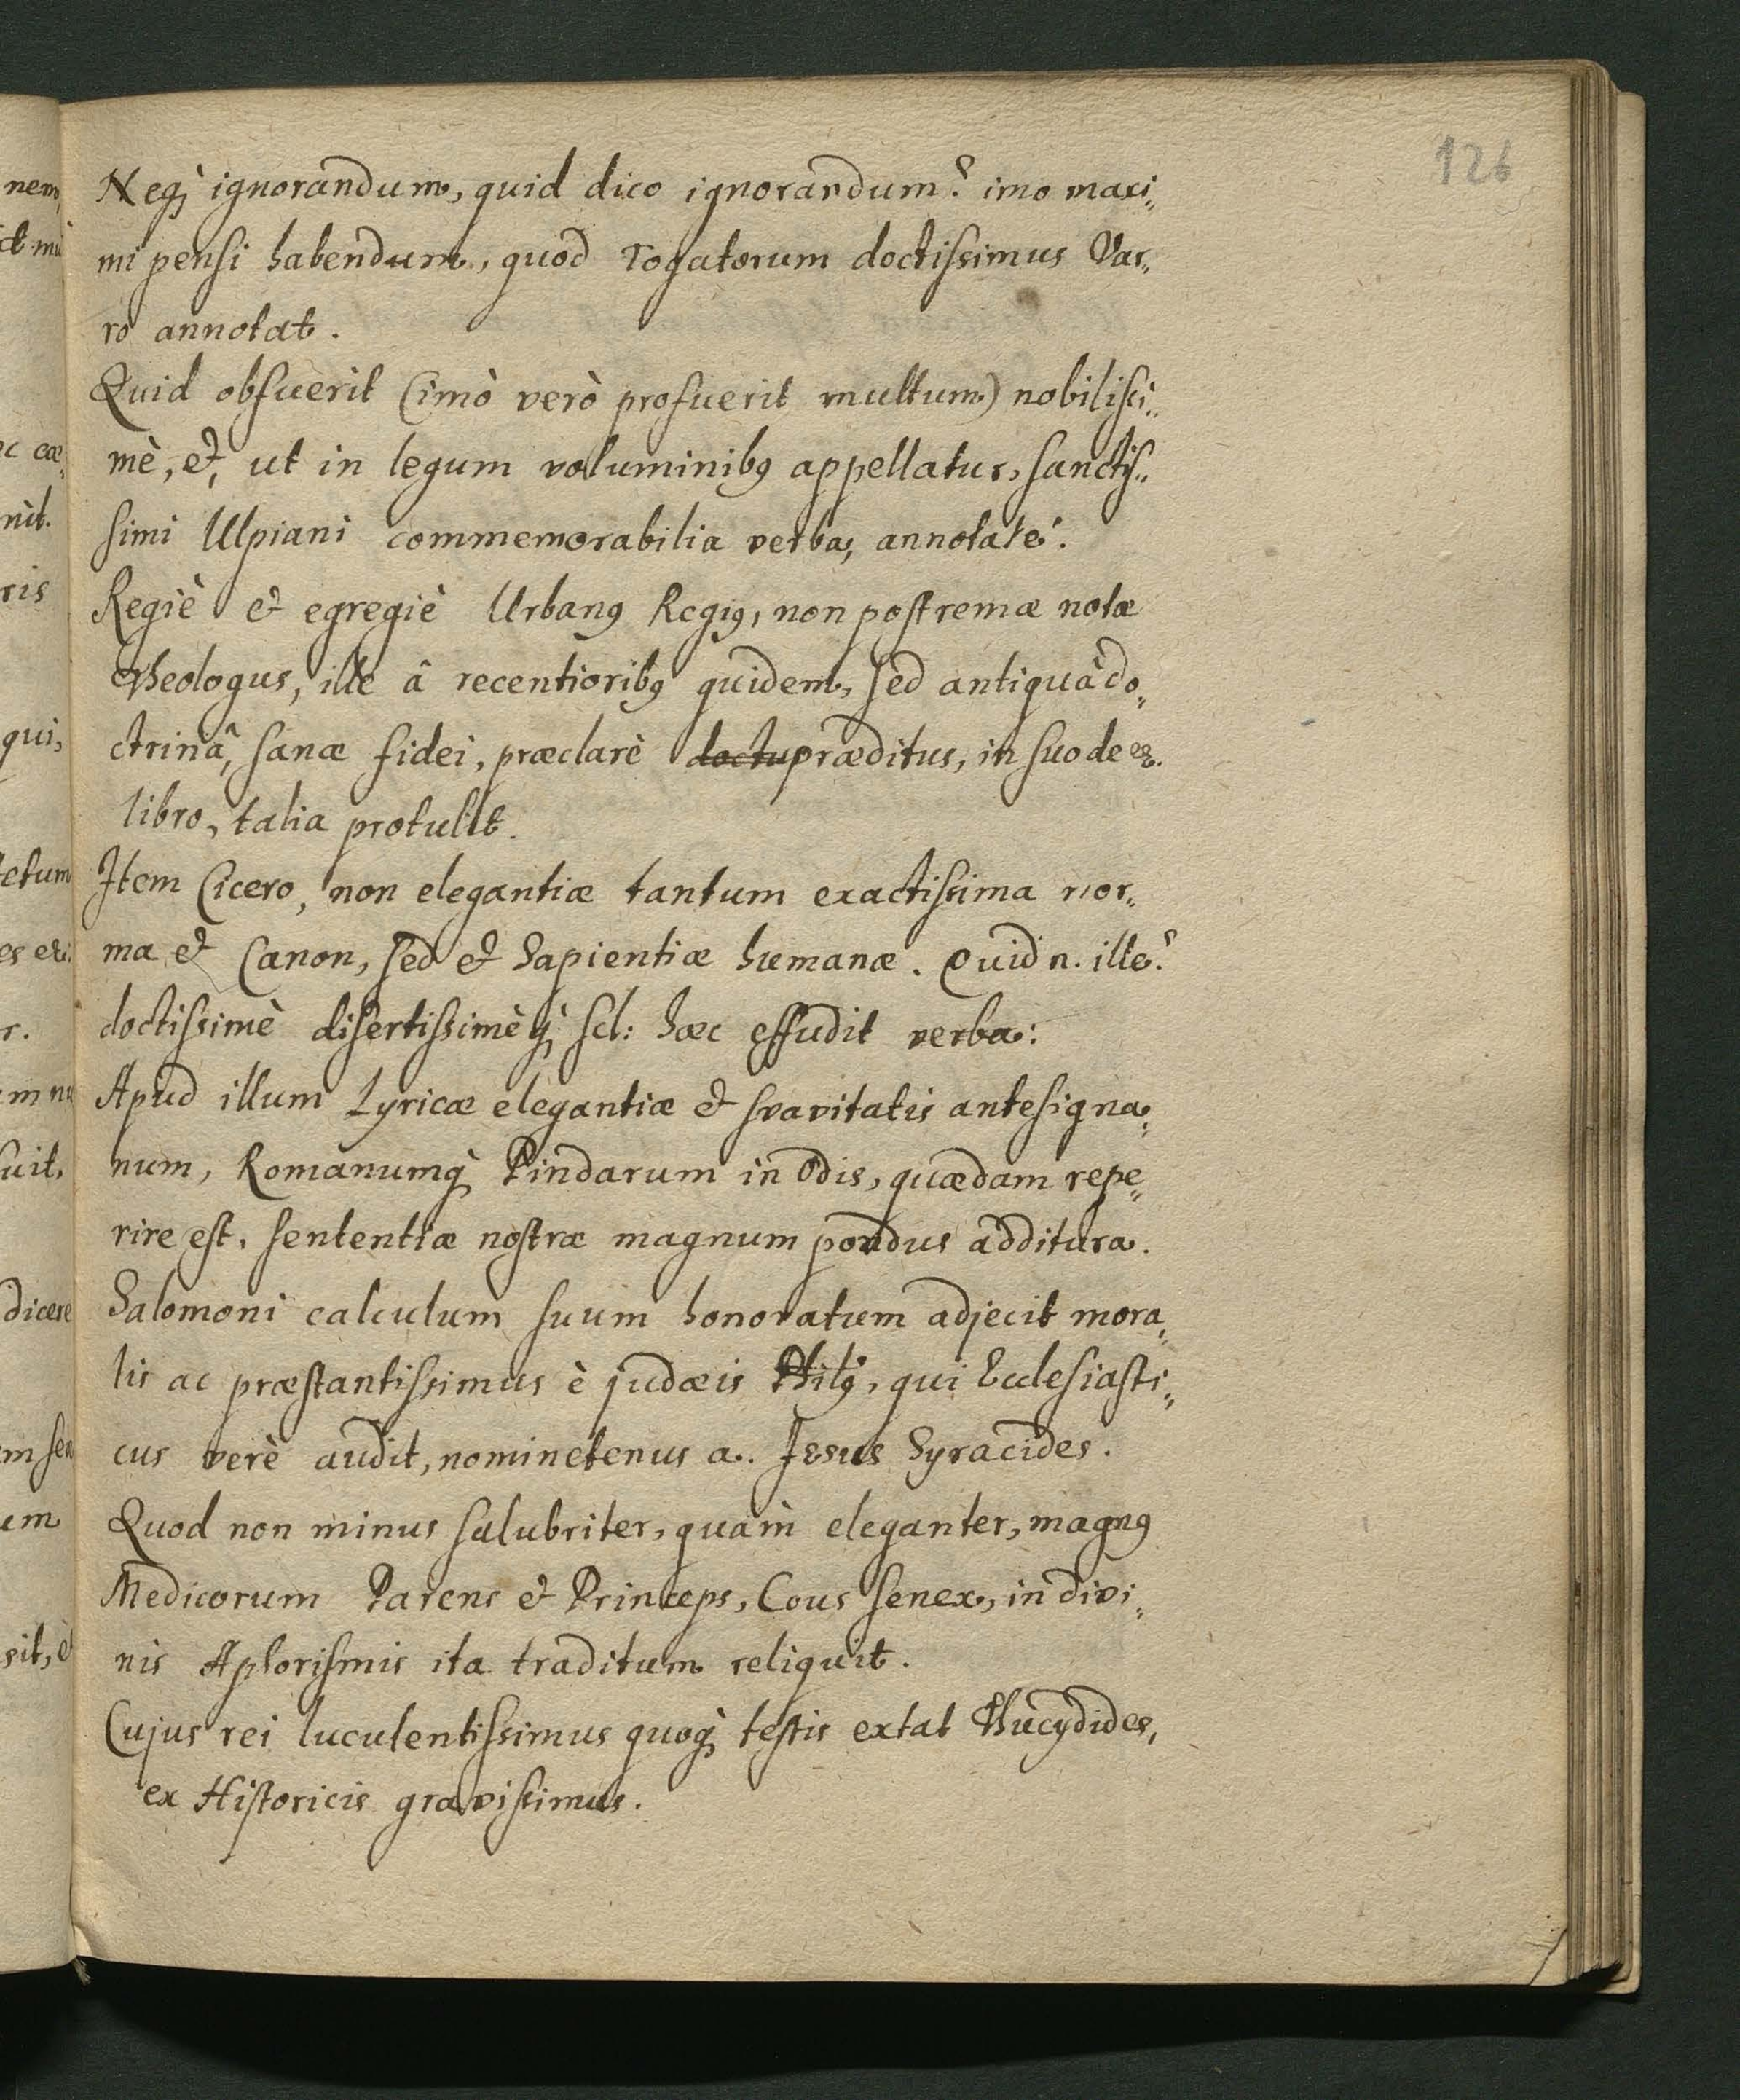 126
Neq; ignorandum, quid dico ignorandum? imo maxi„
mi pensi habendum, quod Togatorum doctissimus Var„
ro annotat.
Quid obfuerit (imò verò profuerit multum) nobilissi„
mè, &, ut in legum voluminibꝰ appellatur, sanctis„
simi Ulpiani commemorabilia verba, annotate!
Regiè & egregiè Urbanꝰ Regiꝰ, non postremæ notæ
Theologus, ille â recentioribꝰ quidem, sed antiquâ do„
ctrinâ, sanæ fidei, præclarè doctu præditus, in suo de
libro, talia protulit.
Item Cicero, non elegantiæ tantum exactissima nor„
ma & Canon, sed & Sapientiæ humanæ. Quid n. ille?
doctissimè disertissimèq; scl: hæc effudit verba:
Apud illum Lyricæ elegantiæ & svavitatis antesigna„
num, Romanumq; Pindarum in Odis, quædam repe„
rire est, sententiæ nostræ magnum pondus additura.
Salomoni calculum suum honoratum adjecit mora„
lis ac præstantissimus è judæis Philꝰ, qui Ecclesiasti„
cus verè audit, nominetenus a. Jesus Syracides.
Quod non minus salubriter, quàm eleganter, magnꝰ
Medicorum Parens & Princeps, Cous senex, in divi„
nis Aphorismis ita traditum reliquit.
Cujus rei luculentissimus quoq; testis extat Thucydides,
ex Historicis gravissimus.